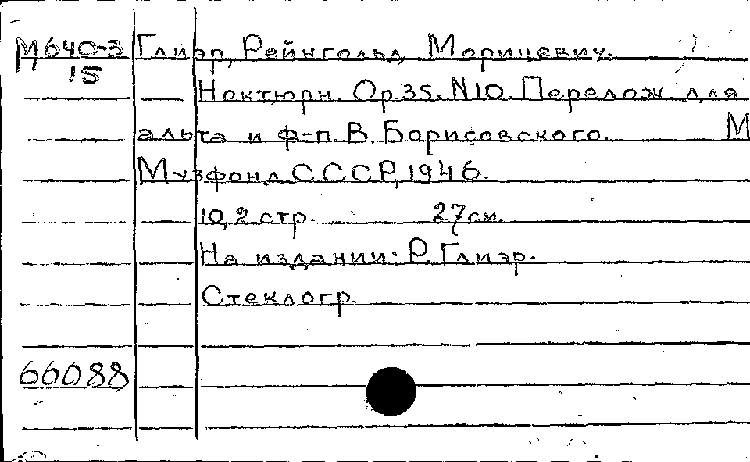 М640-3 Глиэр, Рейнгольд Морицевич.
15
Ноктюрн. Op.35. N10. Перелож. для
альта и ф-п. В. Борисовского. М
Музфонд СССР, 1946.
10,2 стр. 27см.
На издании: Р. Глиэр.
Стеклогр.
66088